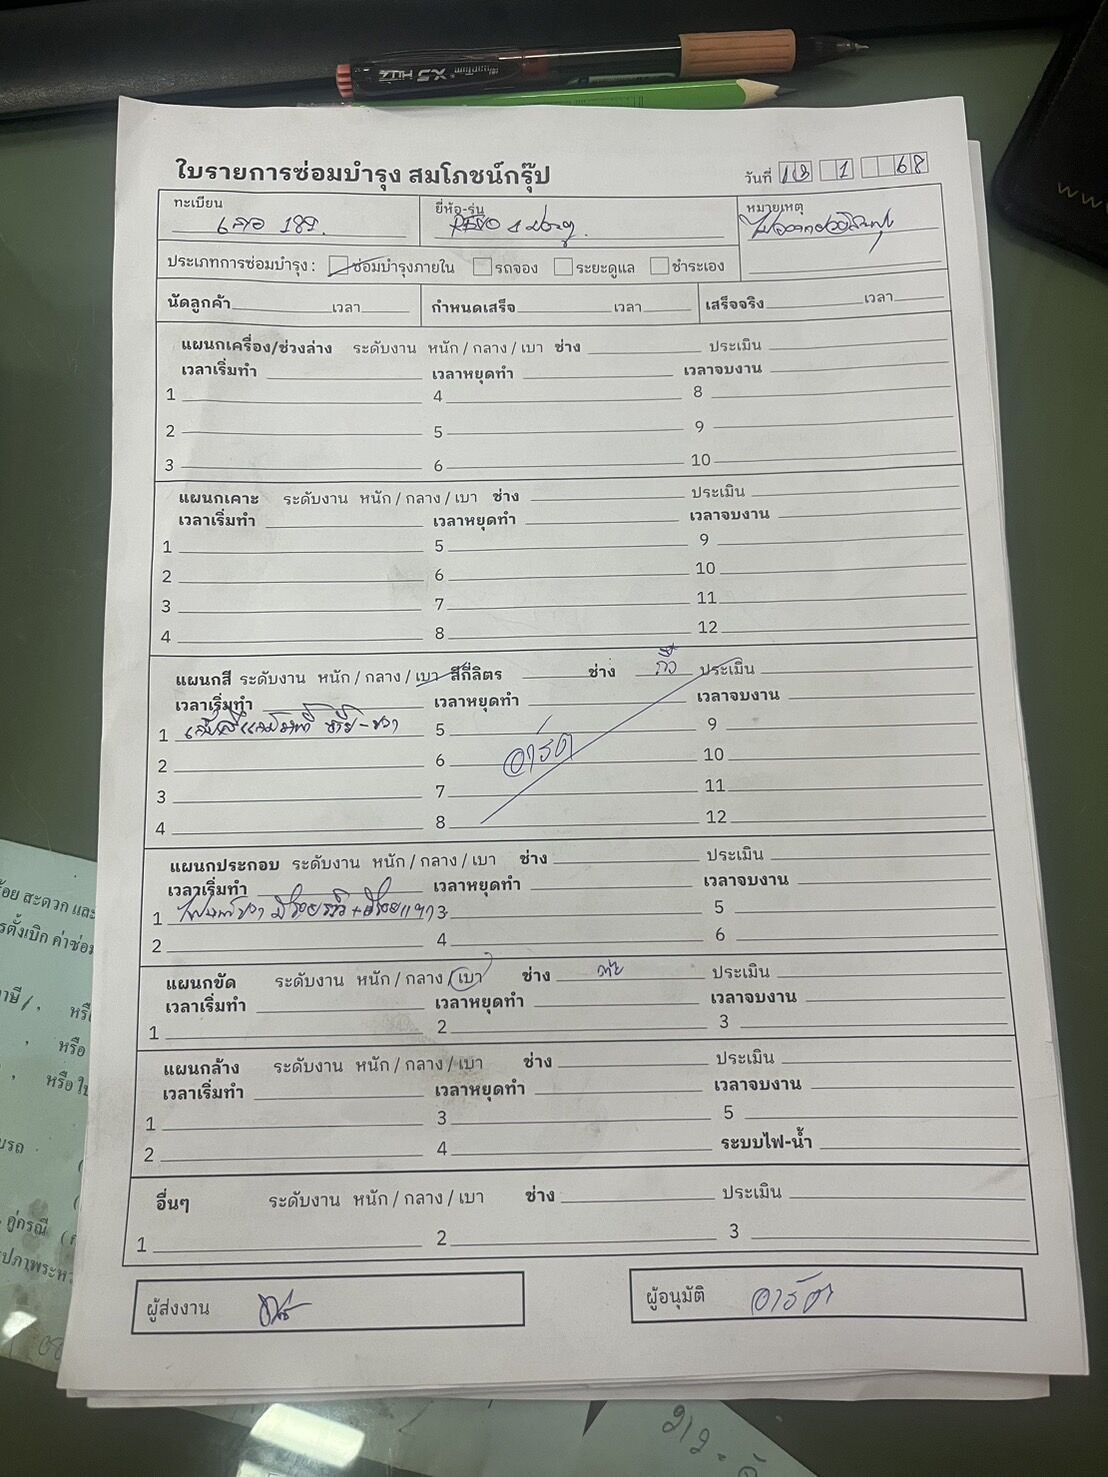 X5 HUZ
ใบรายการซ่อมบำรุง สมโภชน์กรุ๊ป
วันที่ 13 1 68
ทะเบียน
ยี่ห้อ-รุ่น
REVO 4 ประตู
หมายเหตุ
ประเภทการซ่อมบำรุง : ซ่อมบำรุงภายใน รถจอง ระยะดูแล ชำระเอง
นัดลูกค้า เวลา กำหนดเสร็จ เวลา เสร็จจริง เวลา
แผนกเครื่อง/ช่วงล่าง ระดับงาน หนัก / กลาง / เบา ช่าง ประเมิน
เวลาเริ่มทำ เวลาหยุดทำ เวลาจบงาน
1 4 8
2 5 9
3 6 10
แผนกเคาะ ระดับงาน หนัก / กลาง / เบา ช่าง ประเมิน
เวลาเริ่มทำ เวลาหยุดทำ เวลาจบงาน
1 5 9
2 6 10
3 7 11
4 8 12
แผนกสี ระดับงาน หนัก / กลาง / เบา สีกี่ลิตร ช่าง กิ๊ว ประเมิน
เวลาเริ่มทำ เวลาหยุดทำ เวลาจบงาน
1 ซ้าย-ขวา 5 9
2 6 อารีต 10
3 7 11
4 8 12
แผนกประกอบ ระดับงาน หนัก / กลาง / เบา ช่าง ประเมิน
เวลาเริ่มทำ เวลาหยุดทำ เวลาจบงาน
1 มีรอยร้าว + มีรอยแตก 3 5
2 4 6
แผนกขัด ระดับงาน หนัก / กลาง / เบา ช่าง ประเมิน
เวลาเริ่มทำ เวลาหยุดทำ เวลาจบงาน
1 2 3
แผนกล้าง ระดับงาน หนัก / กลาง / เบา ช่าง ประเมิน
เวลาเริ่มทำ เวลาหยุดทำ เวลาจบงาน
1 3 5
2 4 ระบบไฟ-น้ำ
อื่นๆ ระดับงาน หนัก / กลาง / เบา ช่าง ประเมิน
1 2 3
ผู้ส่งงาน
ผู้อนุมัติ อารีต
้อย สะดวก และ
รตั้งเบิก ค่าซ่อม
าษี / , หรือ
, หรือ
, หรือ ใบ
บรถ
คู่กรณี
212